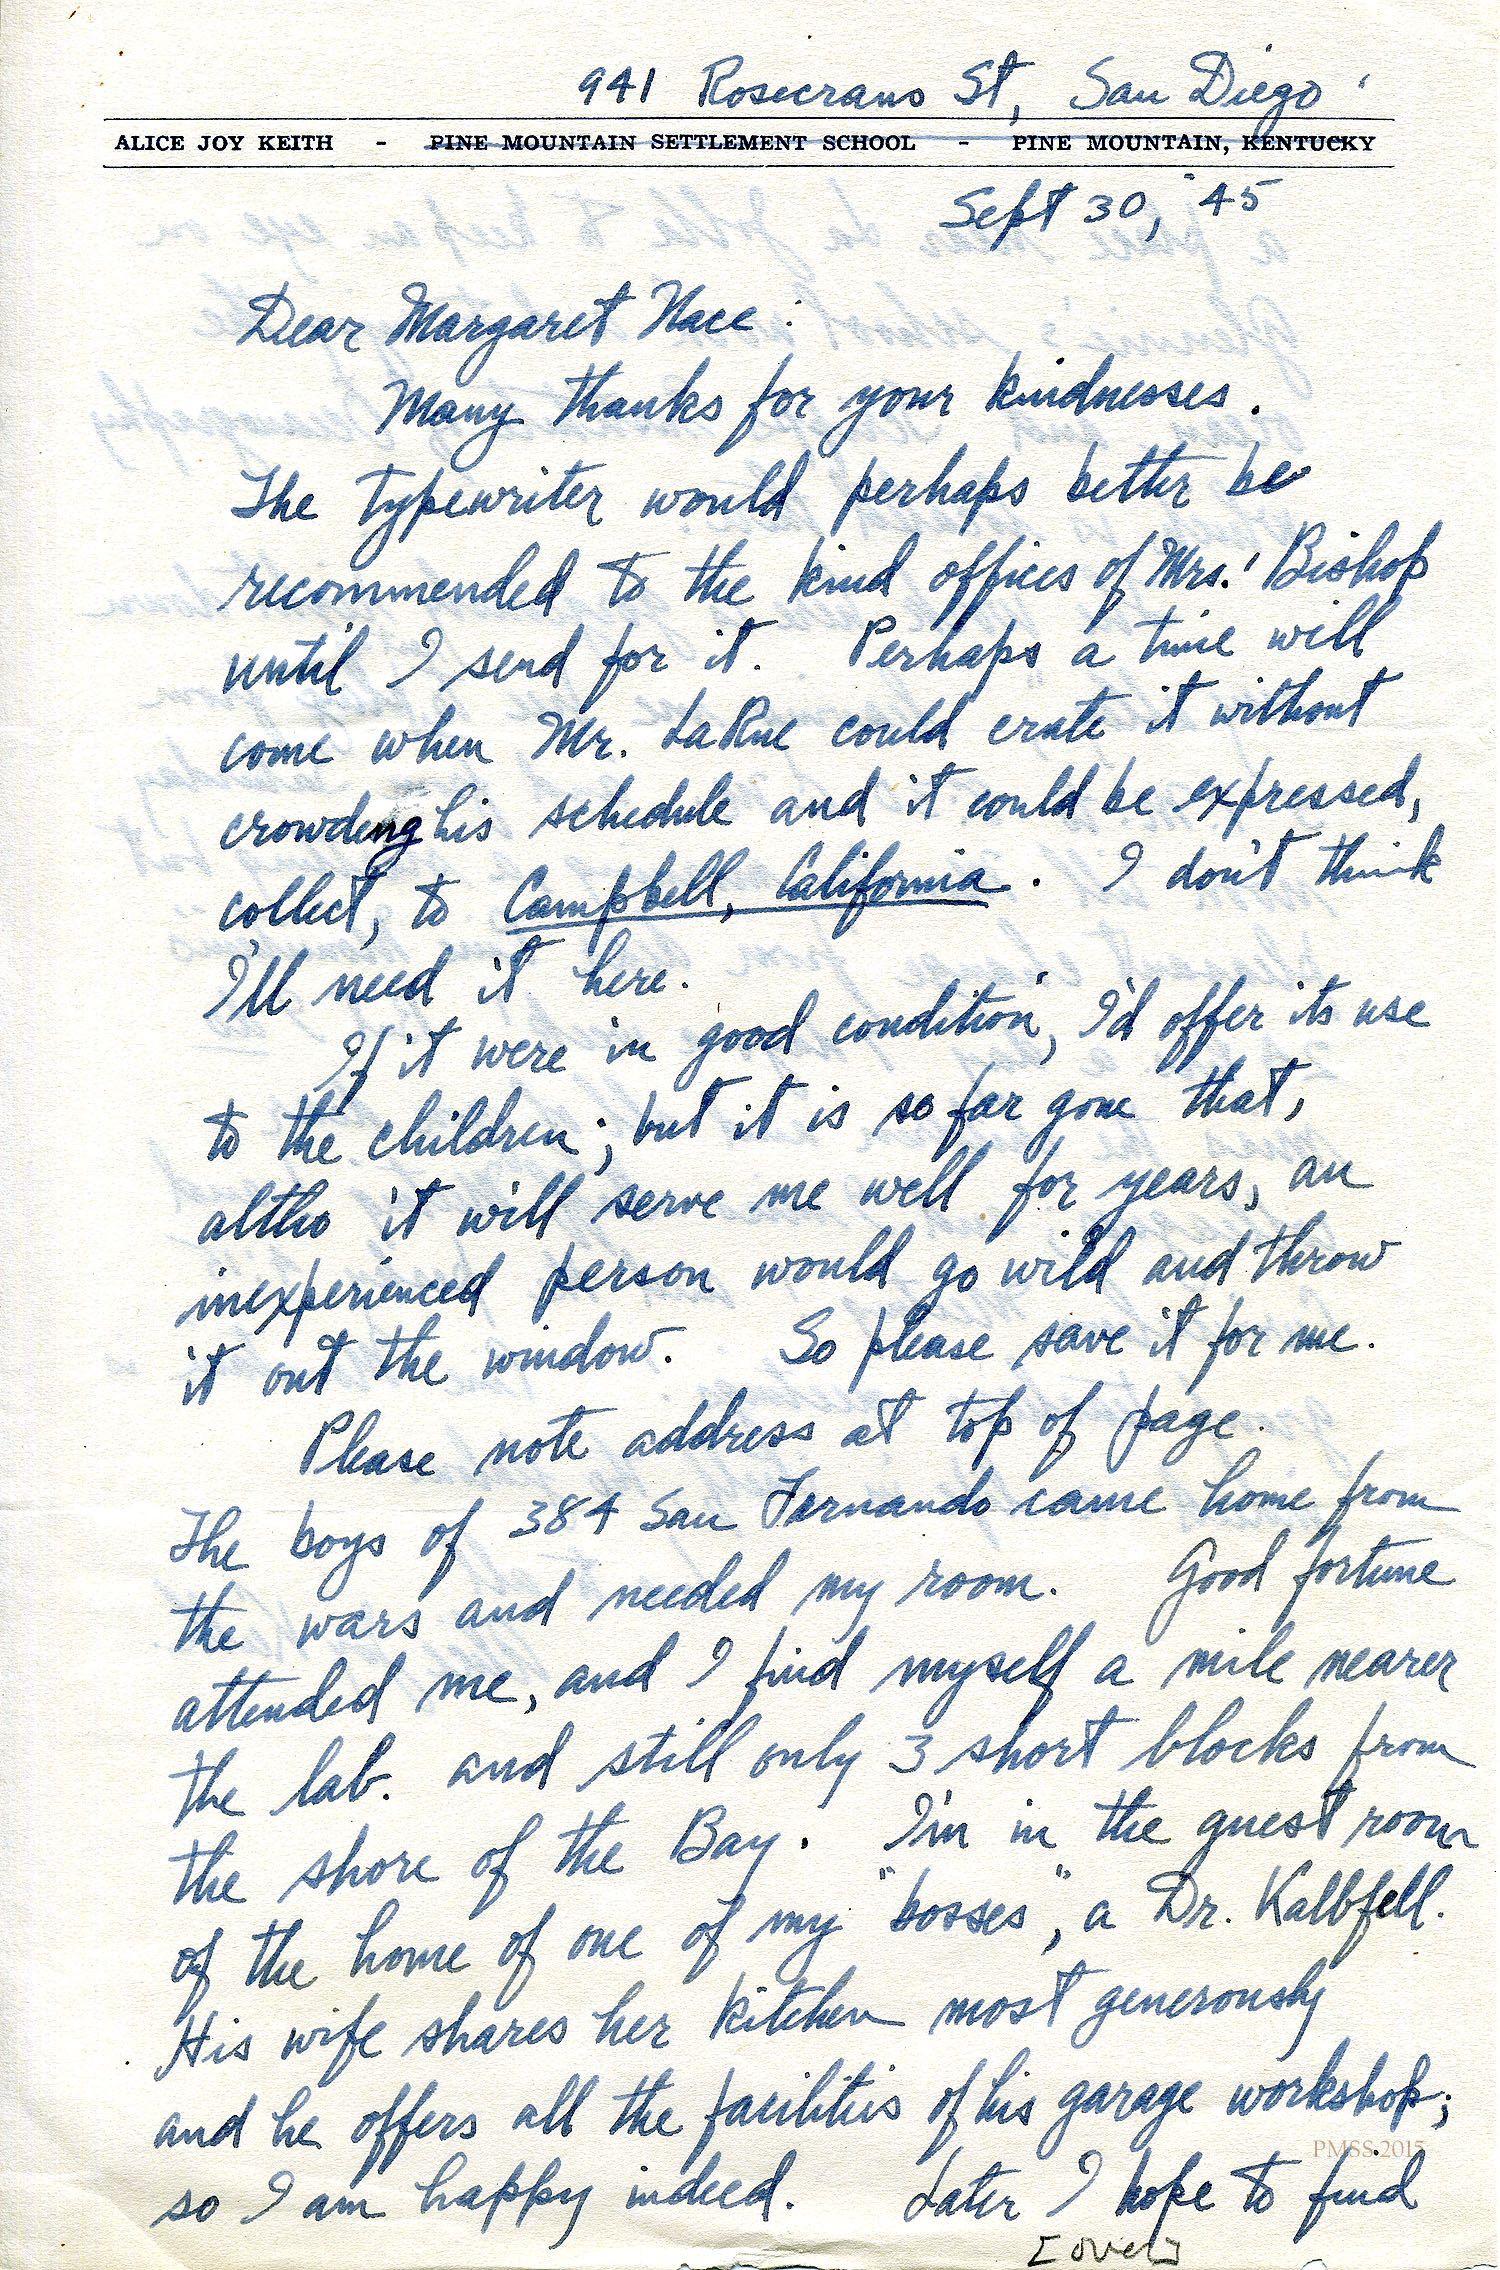 941 Rosecrans St, San Diego
ALICE JOY KEITH - PINE MOUNTAIN SETTLEMENT SCHOOL - PINE MOUNTAIN, KENTUCKY
Sept 30, '45
Dear Margaret Nace:
Many thanks for your kindnesses.
The typewriter would perhaps better be
recommended to the kind offices of Mrs. Bishop
until I send for it. Perhaps a time will
come when Mr. LaRue could crate it without
crowding his schedule and it could be expressed,
collect, to Campbell, California. I don't think
I'll need it here.
If it were in good condition, I'd offer its use
to the children; but it is so far gone that,
altho it will serve me well for years, an
inexperienced person would go wild and throw
it out the window. So please save it for me.
Please note address at top of page.
The boys of 384 San Fernando came home from
the wars and needed my room. Good fortune
attended me, and I find myself a mile nearer
the lab. and still only 3 short blocks from
the shore of the Bay. I'm in the guest room
of the home of one of my "bosses", a Dr. Kalbfell.
His wife shares her kitchen most generously
and he offers all the facilities of his garage workshop;
PMSS 2015
so I am happy indeed. Later I hope to find
[over]